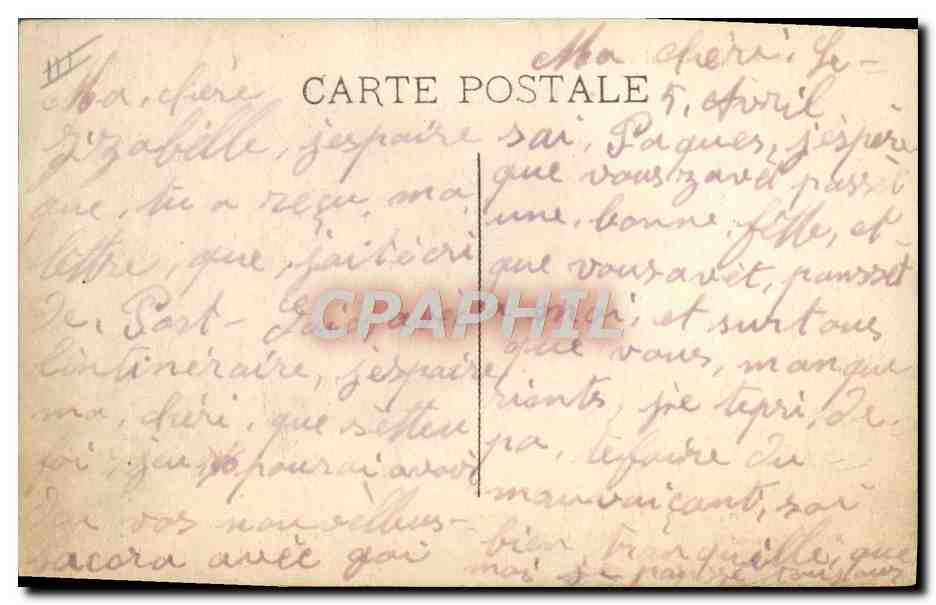 CARTE POSTALE
Ma, chère
Zizabille, jespaire
que, tu a reçu, ma
lettre, que, jaitècri
de, Port-Said
lintinéraire, jespaire
ma, chéri, que sètteu
foi, jeu pourai avoir
du vos nouvèlleus
sacora avéc goi
Ma chéri. Le
5, Avril
sai, Paques, jéspère
que vouszavet passèt
une, bonne, fètte, et
que vousavèt, pansset
a moi, et surtous
que vous, manque
rients, je tepri, de
pa, tefaire du
mauvaiçant, soi
bien, tranquille, que
moi je pansse toujour
CPAPHIL